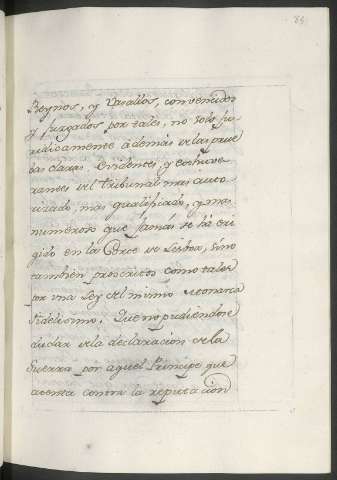 84
Reynos, y Vasallos, convencidos
y juzgados por tales, no solo ju-
ridicamente ademas de las prue-
bas claras, evidentes, y
del Tribunal mas auto-
rizado, mas qualificado, y mas
numeroso que jamàs se há eri-
gido en la Corte de Lisboa, sino
tambien proscritos como tales
por una Ley del mismo Monarca
Fidelisimo. Que no pudiendose
dudar de la declaracion de la
Guerra por aquel Principe que
atenta contra la reputacion